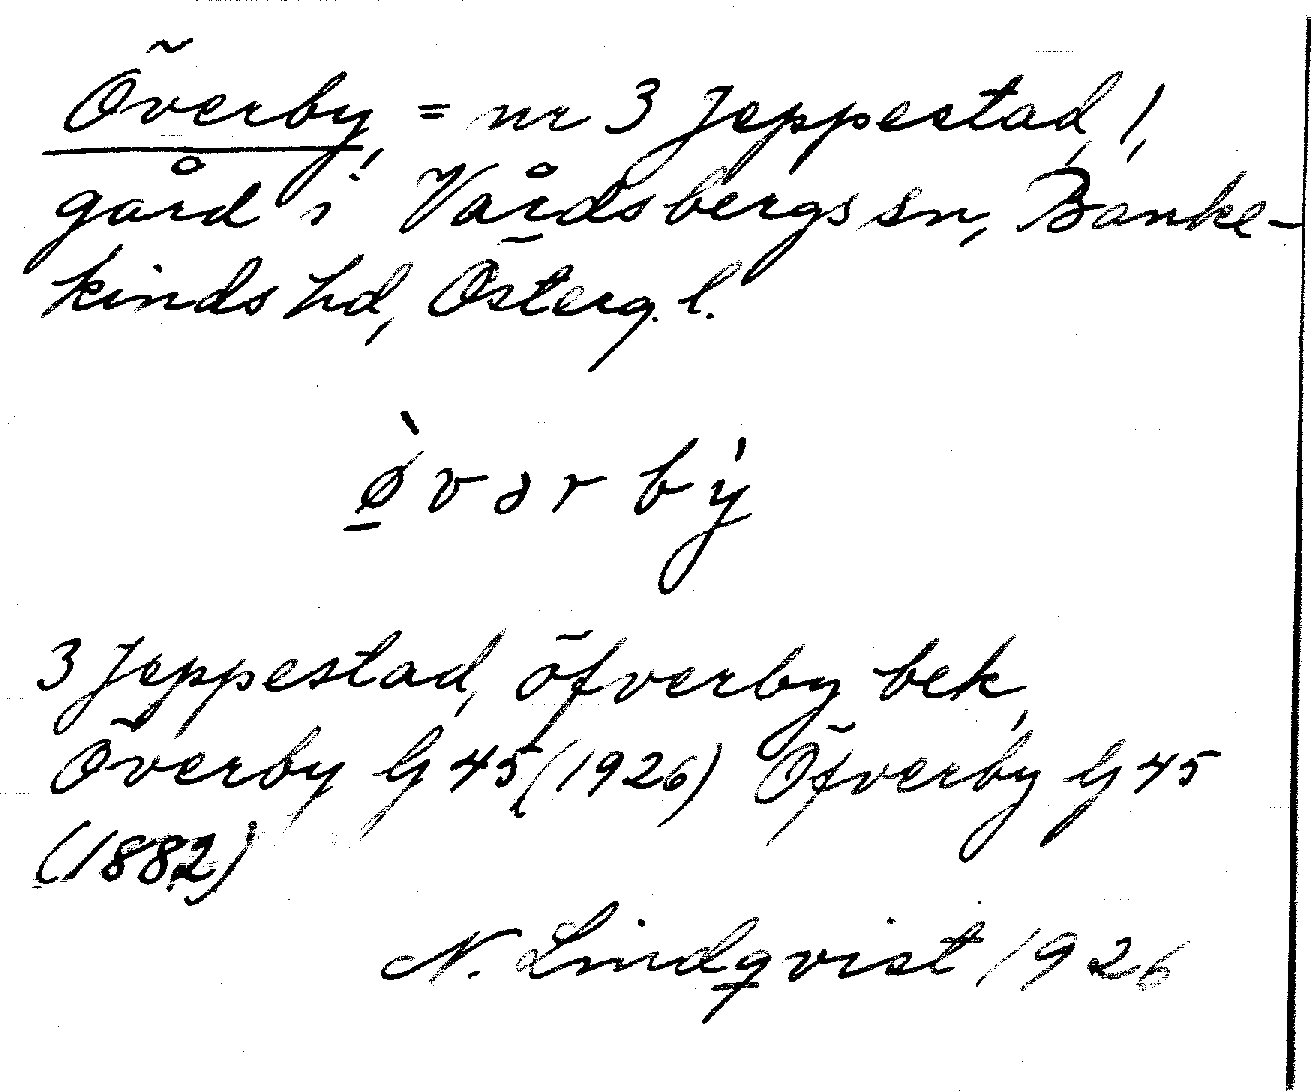 Överby, = nr 3 Jeppestad, !,
gård i Vårdsbergs sn, Banke-
kinds hd, Österg. l.
ø̀vərbý
3 Jeppestad, öfverby bek,
Överby G 45 (1926) Öfverby G 45
(1882)
N. Lindqvist 1926